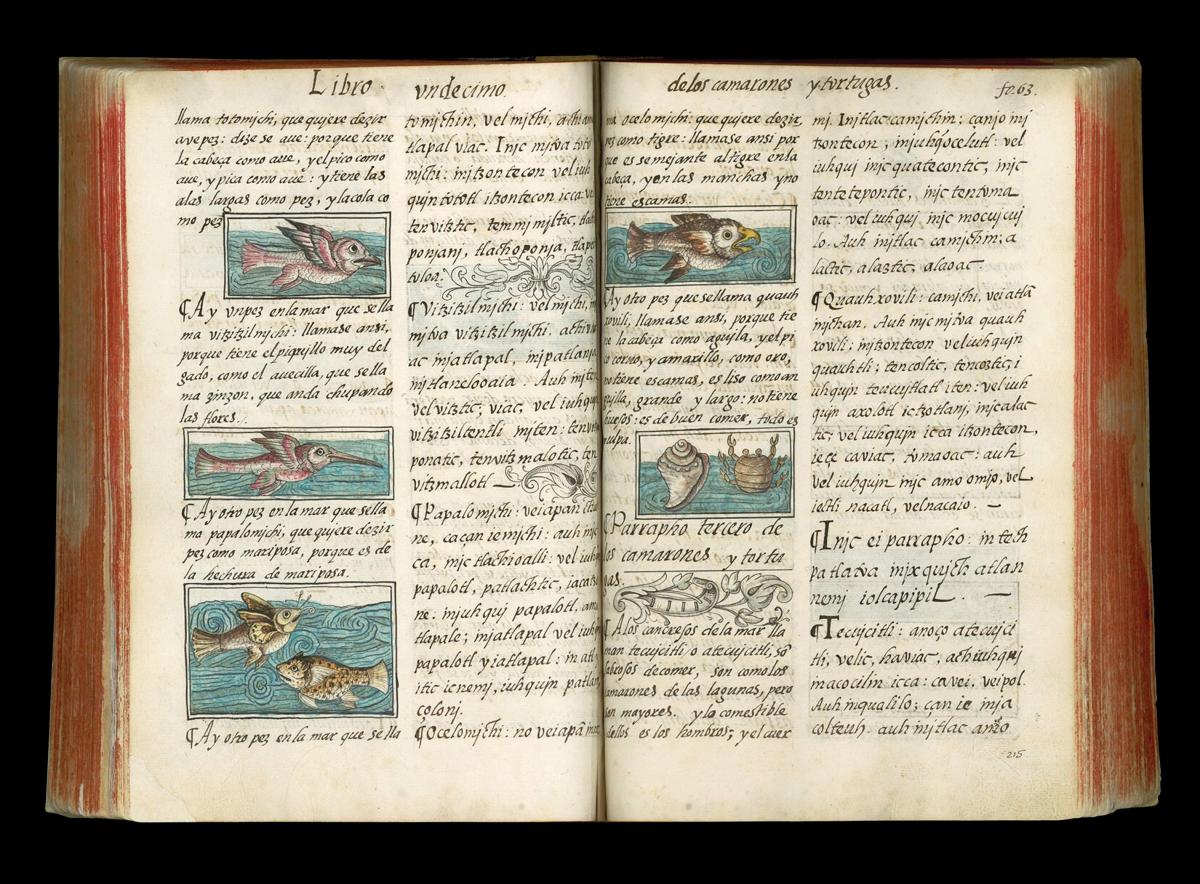 Libro
undecimo
llama totomjchi, que quiere dezir
ave pez: dize se aue: porque tiene
la cabeça como aue, y el pico como
aue, y pica como aue: y tiene las
alas largas como pez, y la cola co
mo pez
¶Ay vn pez en la mar que se lla
ma vitzitzilmjchi: llamase ansi,
porque tiene el piquillo muy del
gado, como el avecilla, que se lla
ma zinzon, que anda chupando
las flores.
¶Ay otro pez en la mar que se lla
ma papalomjchi, que quiere dezir
pez como mariposa, porque es de
la hechura de mariposa.
¶Ay otro pez en la mar que se lla
tomjchin, vel mjchi,
tlapal vlac. Injc mjtva toto
mjchi: injtzontecon vel iuh
qujn tototl itzontecon icca:
tenvitztic, temmjmjltic,
ponjanj, tlachoponja,
tuloa.
¶Vitzitzilmjchi: vel mjchi,
mjtva vitzitzilmjchi,
ac injatlapal, injpatlanja
injtlaneloaia. Auh injten
vel vitztic; viac, vel iuhqujn
vitzitziltentli injten: tenvitz
ponatic, tenvitzmalotic, ten
vitzmallotl —
¶Papalomjchi: veiapan
ne, caçan ie mjchi: auh injc
injc tlachioalli: vel iuh
papalotl, patlachtic,
ne: injuhquj papalotl,
tlapale; injatlapal vel iuh
papalotl y iatlapal: in atl
itic ienemj, iuhqujn patlan
coloni.
¶Ocelomjchi: no veiapā
de los camarones y tortugas.
fo. 63.
ma ocelomjchi: que quiere dezir
pez como tigre: llamase ansi por
que es semejante al tigre en la
cabeça, y en las manchas y no
tiene escamas.
Ay otro pez que se llama quauh
xovili, llamase ansi, porque tie
ne la cabeça como aguyla, y el pi
co corvo, y amarillo, como oro,
no tiene escamas, es liso como an
guilla, grande y largo: no tiene
huesos: es de buen comer, todo es
pulpa.
¶Parrapho tercero de
los camarones y tortu
gas.
¶A los cangrejos de la mar lla
man tecujcitli o atecujcitli, sō
sabrosos de comer, son como los
camarones de las lagunas, pero
son mayores. y lo comestible
dellos es los hombros; y el cuer
mj. Injtlac camjchin; canjo inj
tzontecon, injuhqujocelutl: vel
iuhqui injc quatecontic, injc
tentetepontic, injc tentoma
oac: vel iuhqui injc mocujcuj
lo. Auh injtlac camjchin; a
lactic, alaztic, alaoac
¶Quauhxovili: camjchi, vei atla
mjchan. Auh injc mjtva quauh
xovili: injtzontecon vel iuhqujn
quauhtli; tencoltic, tencoztic; i
uhqujn teucujtlatl iten: vel iuh
qujn axolotl ietzotlanj, injc alac
tic, vel iuhqujn icca itzontecon,
iece caviac, tomaoac: auh
vel iuhqujn injc amo omjo, vel
ixtli nacatl, velnacaio. —
¶Injc ei parrapho: intech
patlatva injxqujch atlan
nemj iolcapipil. —
¶Tecujcitli: anoço atecujci
tli, velic, haviac, ach iuhqnj
inacocilin icca: ca vei, veipol.
Auh inqualilo; çan ie inja
colteuh. auh injtlac amo
215